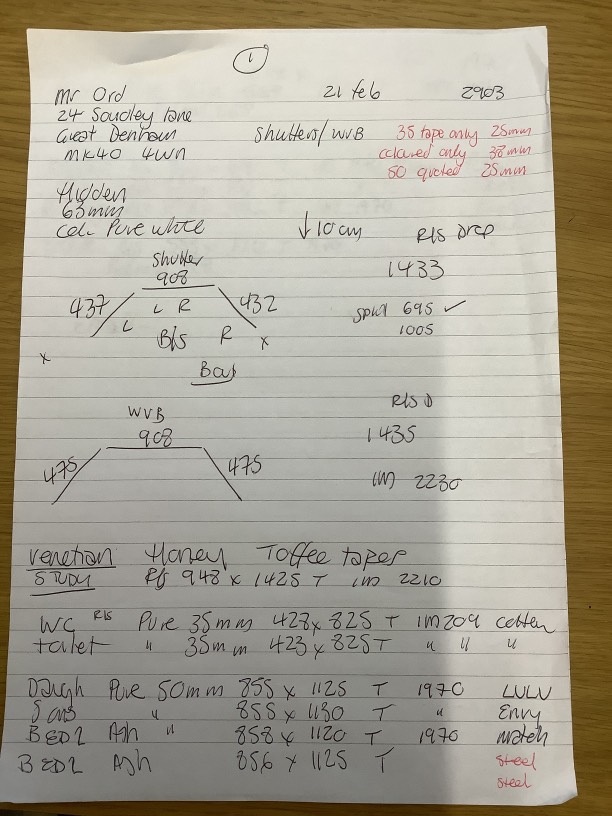 1
Mr Ord 21 feb 2903
24 Soudley Lane
Great Denham Shutters/WVB 35 tape only 25mm
MK40 4WN coloured only 38mm
50 quoted 25mm
Hidden
63mm
Col. Pure white ↓10cm R/S Drop
Shutter 1433
908
437 432
L R
L R
B/S
x x
split 695 ✓
1005
Bay
WVB R/S D
908 1435
475 475
1m 2230
Venetian Honey Toffee tapes
STUDY R/S 948 x 1425 T 1m 2210
WC R/S Pure 35mm 428 x 825 T 1m209 cotton
toilet " 35mm 423 x 825 T " " "
Pure 50mm 855 x 1125 T 1970 LULU
" 855 x 1130 T " Envy
BED2 Ash " 858 x 1120 T 1970 match
BED2 Ash 856 x 1125 T steel
steel